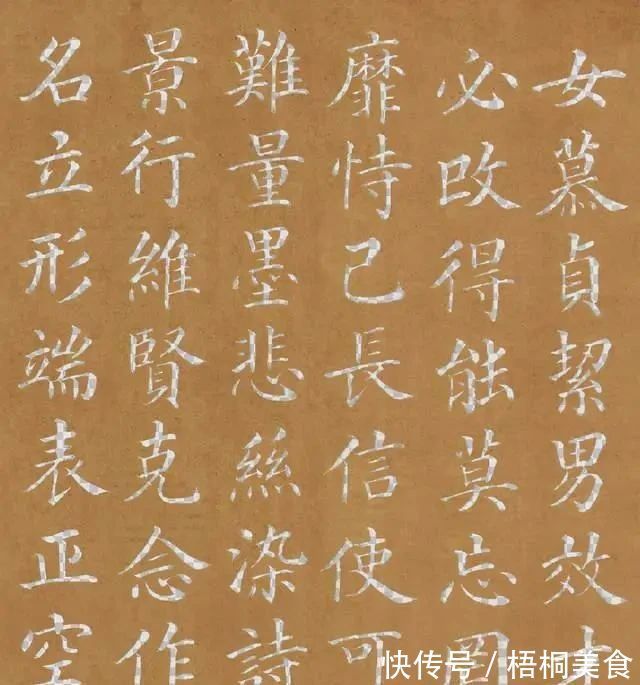 女慕貞絜男效
必改得能莫忘罔
靡恃己長信使可
難量墨悲絲染詩
景行維賢克念作
名立形端表正空
快传号 / 梧桐美食